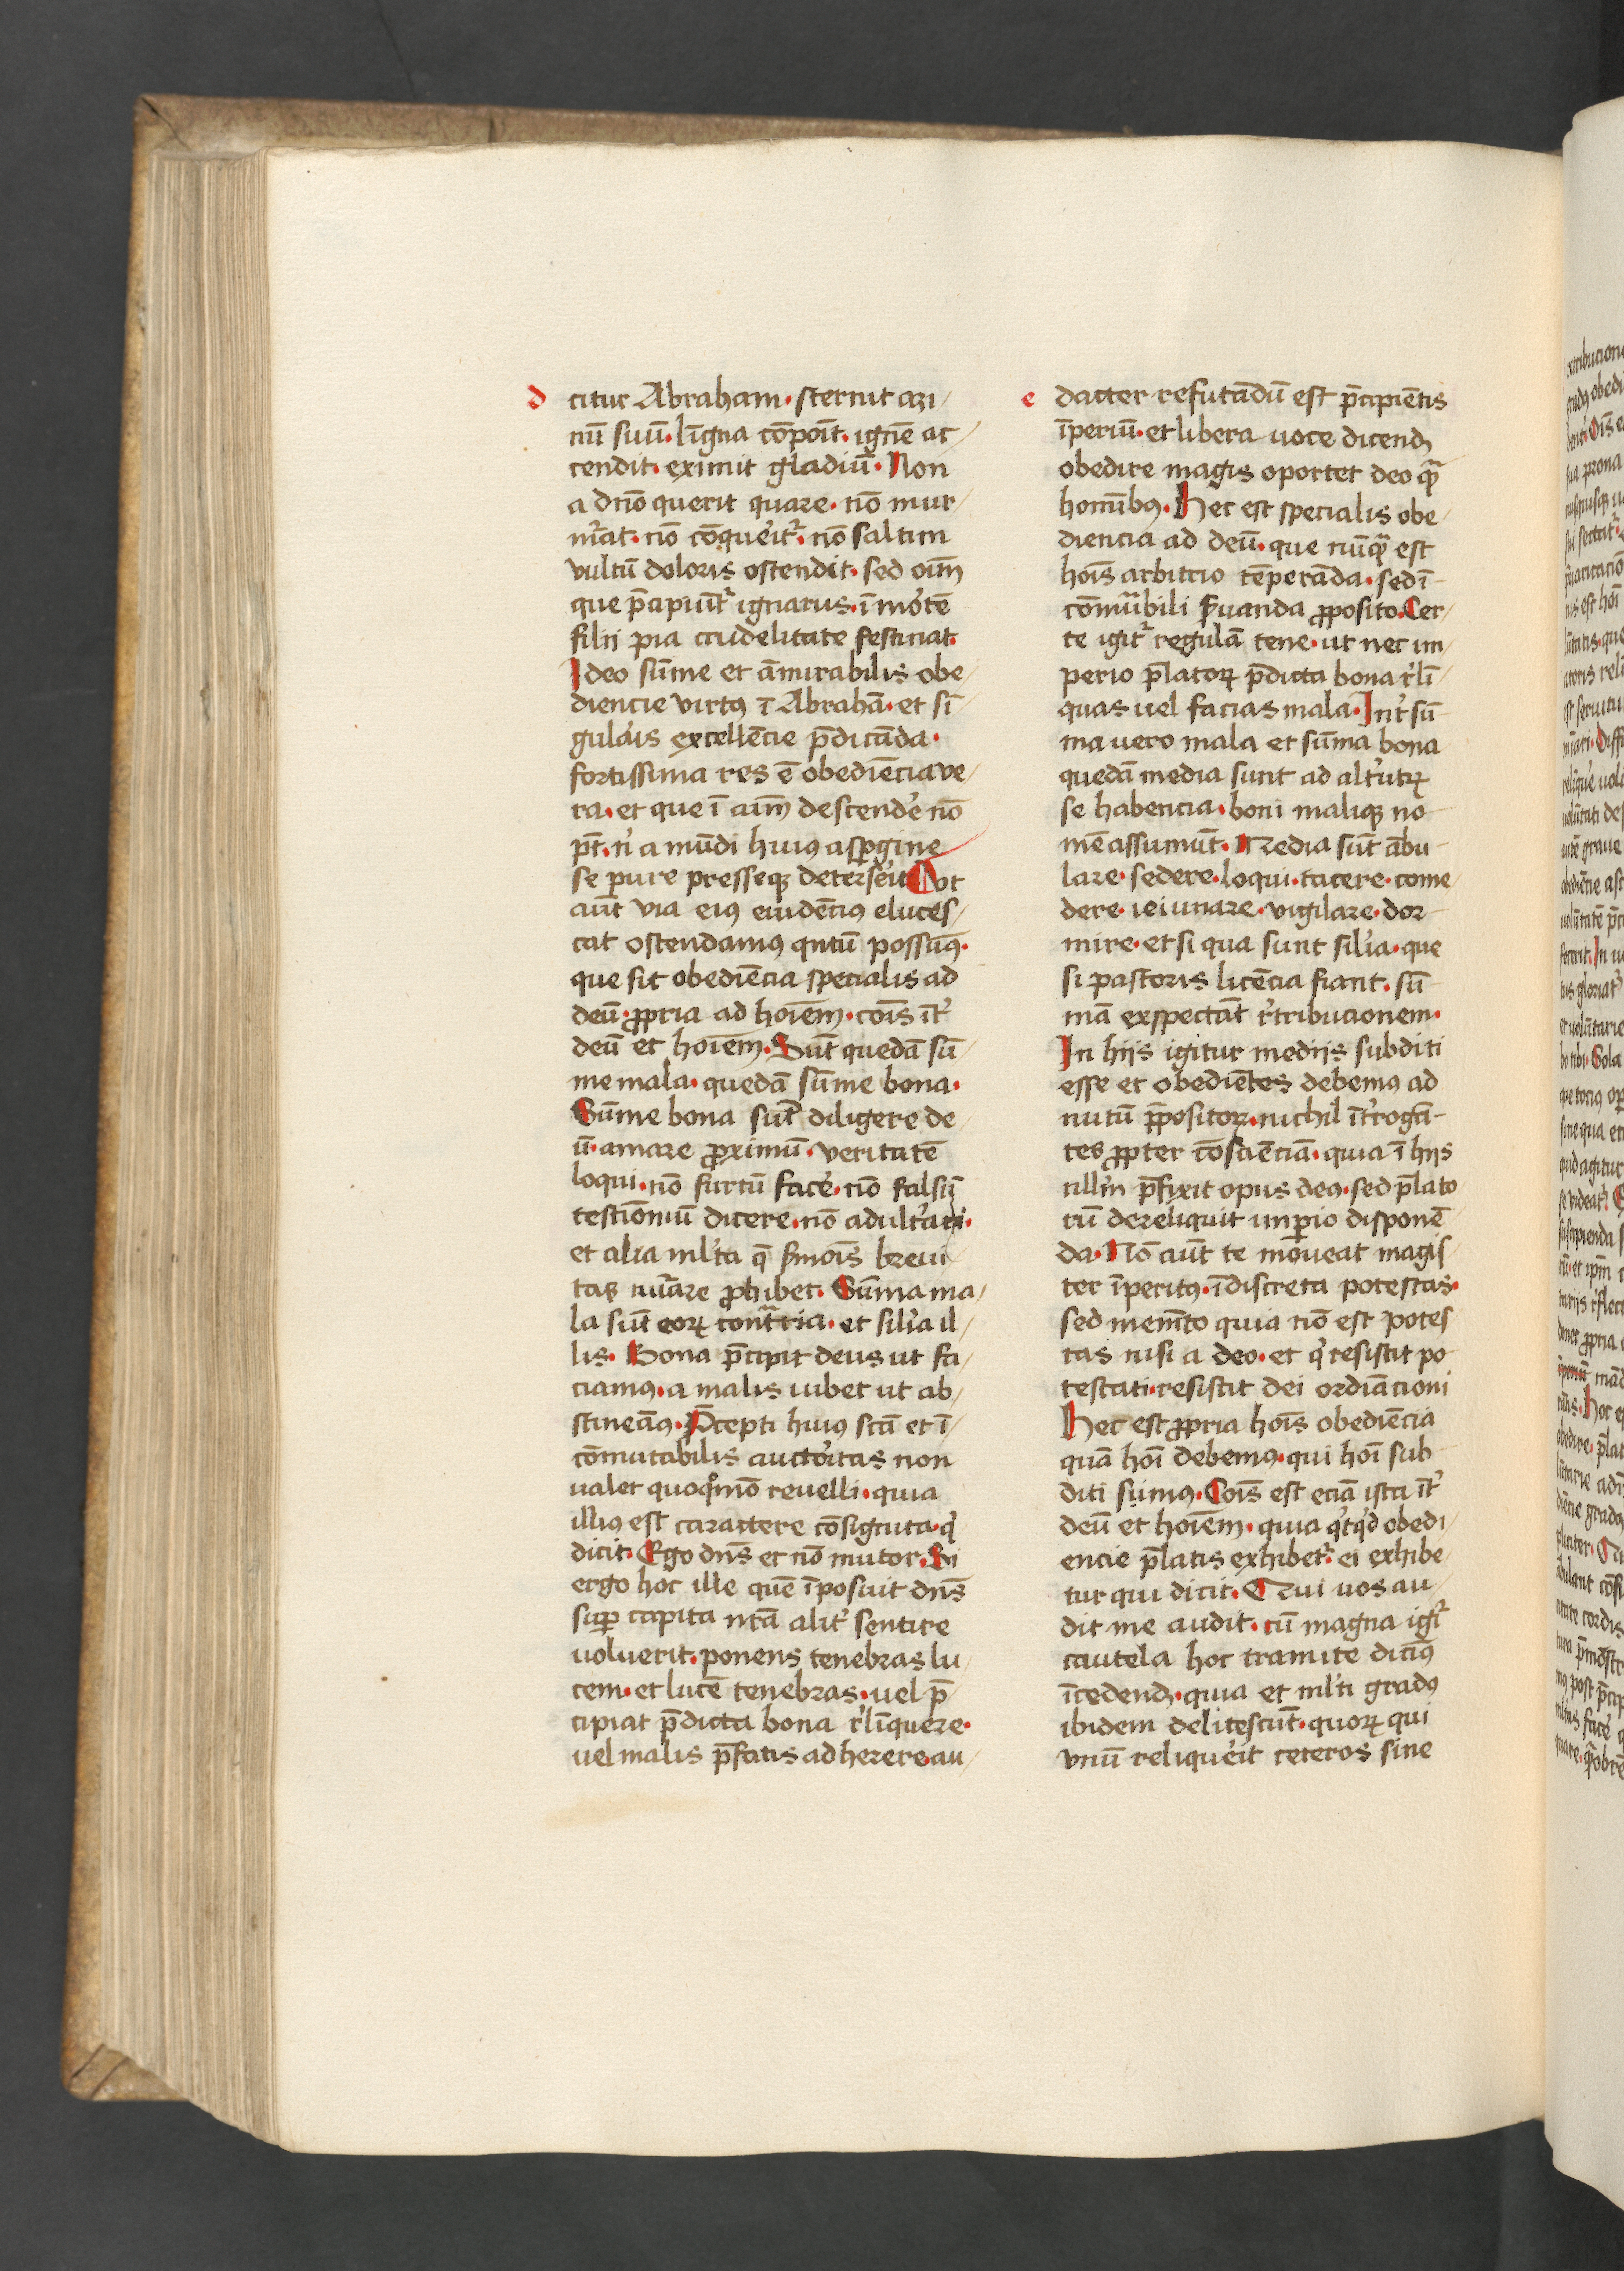 d
citur Abraham. sternit azi/
nū suū. līgna cōpoīt. ignē ac/
cendit. eximit gladiū. Non
a dn̄o querit quare. nō mur/
mͬat. nō cōqueͥitͬ. nō saltim
vultū doloris ostendit. sed oīm̄
que p̄cipiūtͬ ignarus. ī mo̓tē
filii pia crudelitate festinat.
Ideo sūme et āmirabilis obe/
diencie virtꝰ ī Abrahā. et sī
gula̓is excellēcie p̄dicāda.
fortissima res ē obediēcia ve/
ra. et que ī aīm̄ descende̓ nō
pt̄. n̓ a mūdi huiꝰ asꝑgine
se pure presseqꝫ deterse̓it Vt
aūt via eiꝰ euidēciꝰ eluces/
cat ostendamꝰ qn̄tū possūꝰ.
que sit obediēcia specialis ad
deū. ꝓpria ad hoīem̄. coīs īt̓
deū et hoīem̄. Sūt quedā sū
me mala. quedā sūme bona.
Sūme bona sūt diligere de
ū. amare ꝓximū. veritatē
loqui. nō furtū face̓. nō falsū
testīoniū dicere. nō adult̓ari.
et alia ml̓ta q̄ s̓moīs breui
tas nͬare ꝓhibet. Sūma ma/
la sūt eoꝝ contͣria. et sili̓a il/
lis. Bona p̄cipit deus ut fa/
ciamꝰ. a malis iubet ut ab/
stineāꝰ. P̄cepti huiꝰ sc̄ā et ī/
cōmutabilis aucto̓itas non
ualet quoqͦmō reuelli. quia
illiꝰ est caractere cōsignata. q̓
dicit. Ego dn̄s et nō mutor. Si
ergo hoc ille quē īposuit dn̄s
suꝑ capita nr̄ā alit̓ sentire
uoluerit. ponens tenebras lu/
cem. et lucē tenebras. uel p̄
cipiat p̄dicta bona r̓līquere.
uel malis p̄fatis adherere. au/
e
dacter refutādū est p̄cipiētis
īperiū. et libera uoce dicendꝫ
obedire magis oportet deo qͣ̄
homībꝰ. Hec est specialis obe/
diencia ad deū. que nūqͣ̄ est
hoīs arbitrio tēperāda. sed ī
cōmͣ̄bili s̓uanda ꝓposito. Cer/
te igitͬ regulā tene. ut nec im/
perio p̄latoꝝ p̄dicta bona r̓lī/
quas uel facias mala. Int̓ sū
ma uero mala et sūma bona
quedā media sunt ad alt̓utꝝ
se habencia. boni maliqꝫ no
mē assumūt. Media sūt ābu
lare. sedere. loqui. tacere. come/
dere. ieiunare. vigilare. dor
mire. et si qua sunt sili̓a. que
si pastoris licēcia fiant. sū
mā exspectāt r̓tribucionem.
In hijs igitur medijs subditi
esse et obediētes debemꝰ ad
nutū p̄positoꝝ. nichil īt̓rogā-
tes ꝓpter cōsciēciā. quia ī hijs
nllm̓ p̄fixit opus deꝰ. sed p̄lato
rū dereliquit imꝑio disponē
da. Nō aūt te mōueat magis/
ter īperitꝰ. īdiscreta potestas.
sed memēto quia nō est potes
tas nisi a deo. et q̓ resistit po
testati. resistit dei ordiācioni
Hec est ꝓpria hoīs obediēcia
quā hoī debemꝰ. qui hoī sub
diti sumꝰ. Coīs est eciā ista īt̓
deū et hoīem̄. quia q̓cqͥd obedi/
encie p̄latis exhibetͬ. ei exhibe
tur qui dicit. Qui uos au/
dit me audit. cū magna igͬ
cautela hoc tramite diciꝰ
īcedendꝫ. quia et ml̓ti gradꝰ
ibidem delitescūt. quoꝝ qui
vnū relique̓it ceteros sine